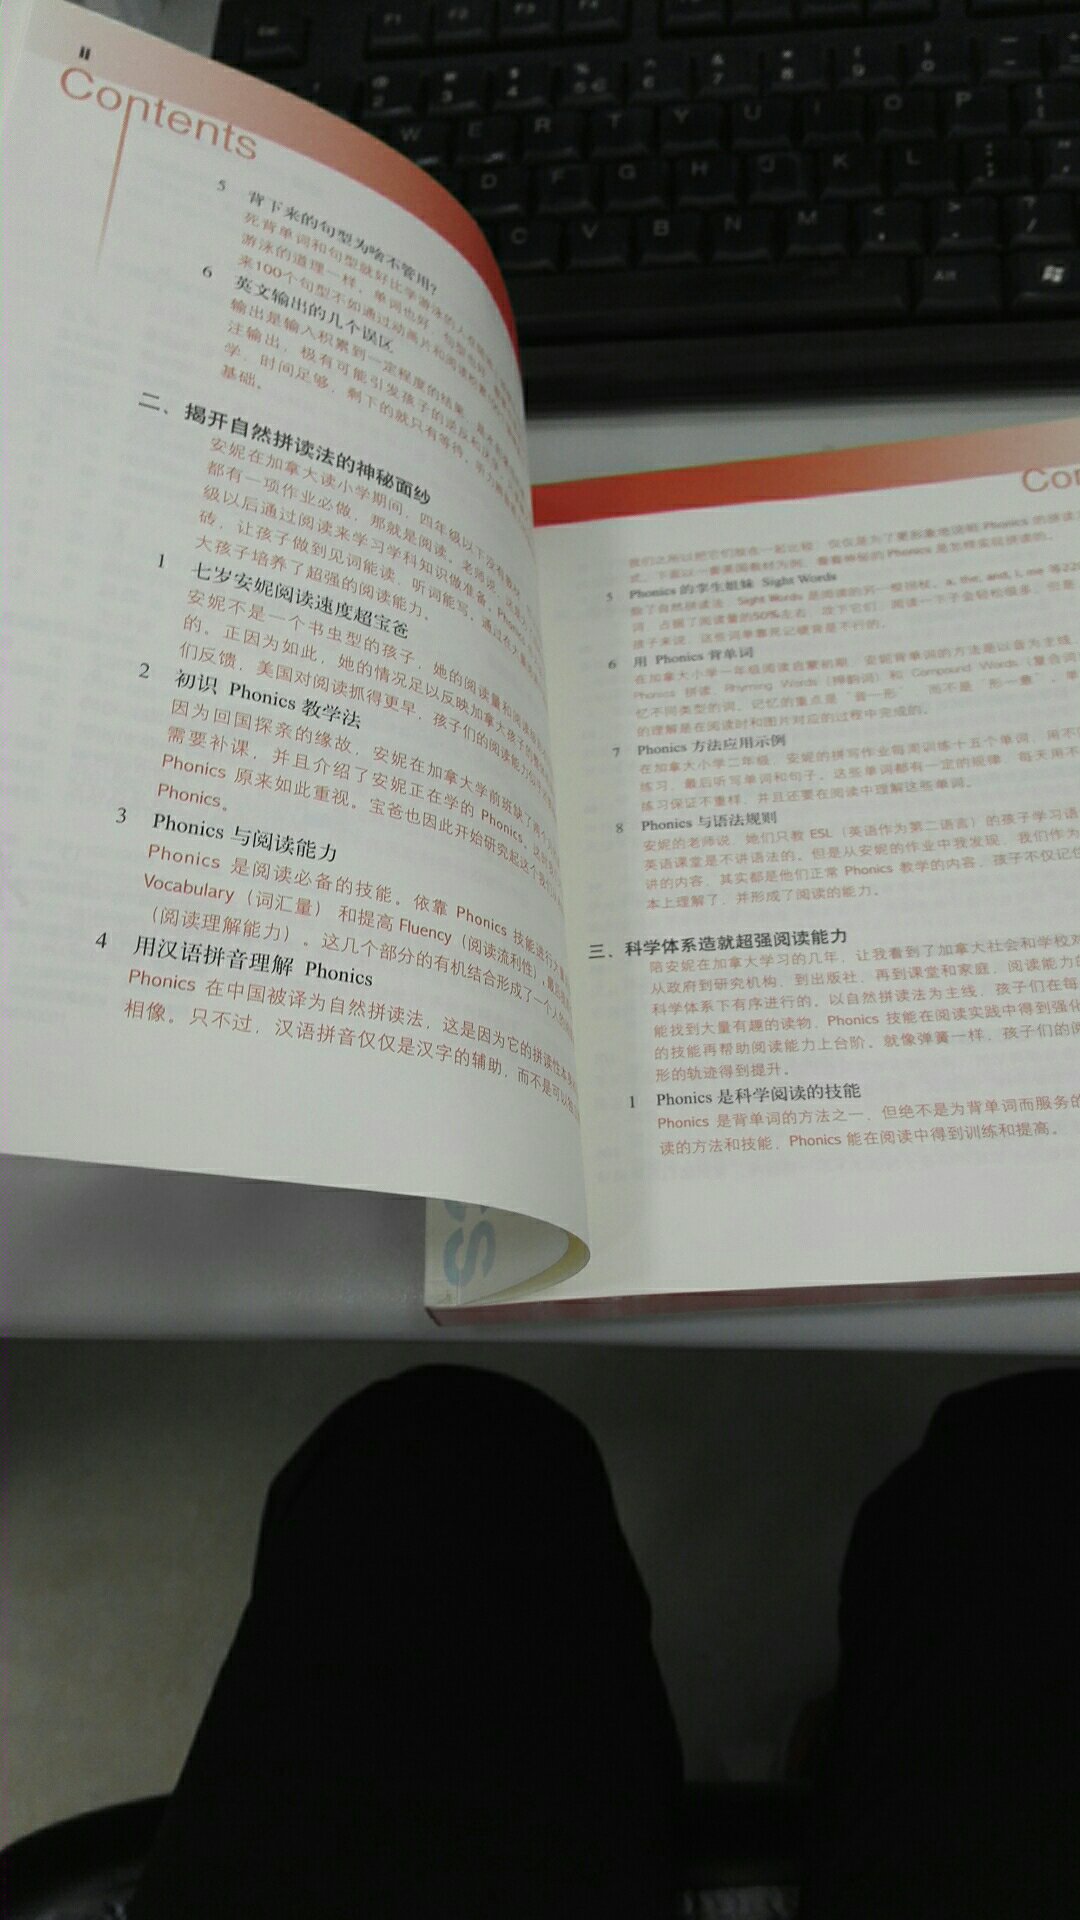 ii
Contents
5 背下来的句型为啥不管用?
死背单词和句型就好比学游泳的人
游泳的道理一样，单词也好，句型也好
来100个句型不如通过动画片和阅读
6 英文输出的几个误区
输出是输入积累到一定程度的结果
注输出，极有可能引发孩子的逆反和
学，时间足够，剩下的就只有等待，听力
基础。
二、揭开自然拼读法的神秘面纱
安妮在加拿大读小学期间，四年级以下没有教材
都有一项作业必做，那就是阅读。老师说，这是
级以后通过阅读来学习学科知识做准备。Phonics
砖，让孩子做到见词能读，听词能写，通过在大量
大孩子培养了超强的阅读能力。
1 七岁安妮阅读速度超宝爸
安妮不是一个书虫型的孩子，她的阅读量和阅读
的。正因为如此，她的情况足以反映加拿大孩子的整体
们反馈，美国对阅读抓得更早，孩子们的阅读能力
2 初识 Phonics 教学法
因为回国探亲的缘故，安妮在加拿大学前班缺了两个
需要补课，并且介绍了安妮正在学的 Phonics。
Phonics 原来如此重视。宝爸也因此开始研究起这个
Phonics。
3 Phonics 与阅读能力
Phonics 是阅读必备的技能。依靠 Phonics 技能进行大量
Vocabulary（词汇量）和提高 Fluency（阅读流利性），
（阅读理解能力）。这几个部分的有机结合形成了一个人的
4 用汉语拼音理解 Phonics
Phonics 在中国被译为自然拼读法，这是因为它的拼读性
相像。只不过，汉语拼音仅仅是汉字的辅助，而不是可以
Con
我们之所以把它们放在一起比较，仅仅是为了更形象地说明 Phonics 的拼读
式。下面以一套美国教材为例，看看神秘的 Phonics 是怎样实现拼读的。
5 Phonics 的孪生姐妹 Sight Words
除了自然拼读法，Sight Words 是阅读的另一根拐杖。a, the, and, I, me 等220
词，占据了阅读量的50%左右，攻下它们，阅读一下子会轻松很多。但是
孩子来说，这些词单靠死记硬背是不行的。
6 用 Phonics 背单词
在加拿大小学一年级阅读启蒙初期，安妮背单词的方法是以音为主线，
Phonics 拼读，Rhyming Words（押韵词）和 Compound Words（复合词
忆不同类型的词。记忆的重点是“音—形”，而不是“形—意”。单
的理解是在阅读时和图片对应的过程中完成的。
7 Phonics 方法应用示例
在加拿大小学二年级，安妮的拼写作业每周训练十五个单词，用不
练习，最后听写单词和句子。这些单词都有一定的规律，每天用不
练习保证不重样，并且还要在阅读中理解这些单词。
8 Phonics 与语法规则
安妮的老师说，她们只教 ESL（英语作为第二语言）的孩子学习语
英语课堂是不讲语法的。但是从安妮的作业中我发现，我们作为
讲的内容，其实都是他们正常 Phonics 教学的内容，孩子不仅记住
本上理解了，并形成了阅读的能力。
三、科学体系造就超强阅读能力
陪安妮在加拿大学习的几年，让我看到了加拿大社会和学校对
从政府到研究机构，到出版社，再到课堂和家庭，阅读能力的
科学体系下有序进行的。以自然拼读法为主线，孩子们在每
能找到大量有趣的读物，Phonics 技能在阅读实践中得到强化
的技能再帮助阅读能力上台阶。就像弹簧一样，孩子们的阅
形的轨迹得到提升。
1 Phonics 是科学阅读的技能
Phonics 是背单词的方法之一，但绝不是为背单词而服务的
读的方法和技能，Phonics 能在阅读中得到训练和提高。